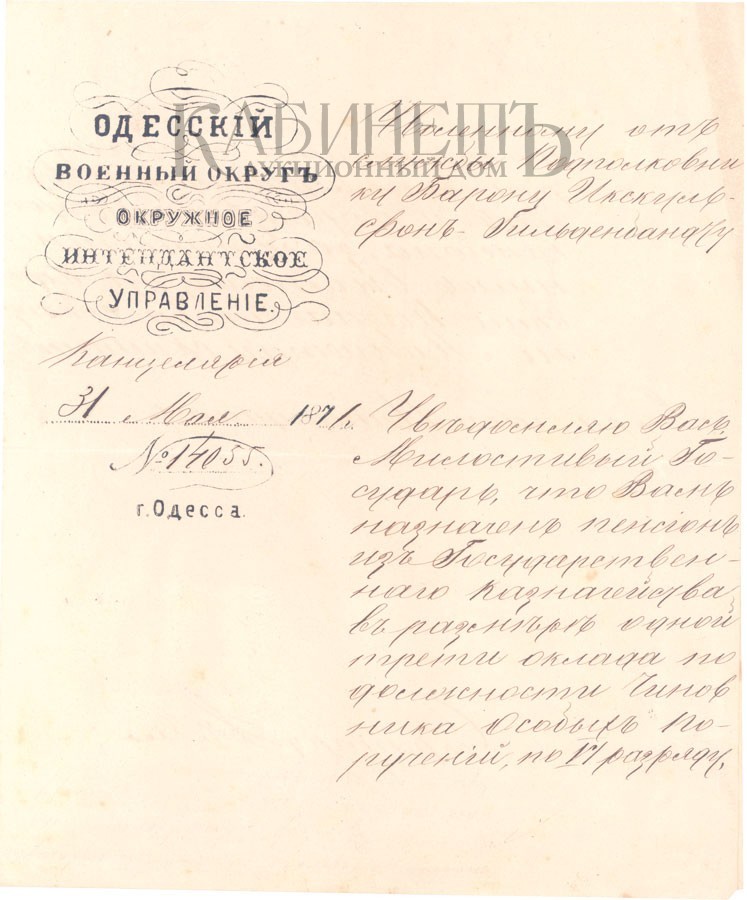 КАБИНЕТЪ
АУКЦИОННЫЙ ДОМ
ОДЕССКІЙ
ВОЕННЫЙ ОКРУГЪ
ОКРУЖНОЕ
ИНТЕНДАНТСКОЕ
УПРАВЛЕНІЕ.
Канцелярія
31 Мая 1871 г.
№ 14055.
г. Одесса.
Уволенному отъ
службы Подполковни
ку Барону Икскуль-
фонъ-Гильденбандту
Увѣдомляю Васъ,
Милостивый Го-
сударь, что Вамъ
назначенъ пенсіонъ
изъ Государствен-
наго Казначейства
въ размѣрѣ одной
трети оклада по
должности Чинов
ника Особыхъ По-
рученій, по VI разряду,